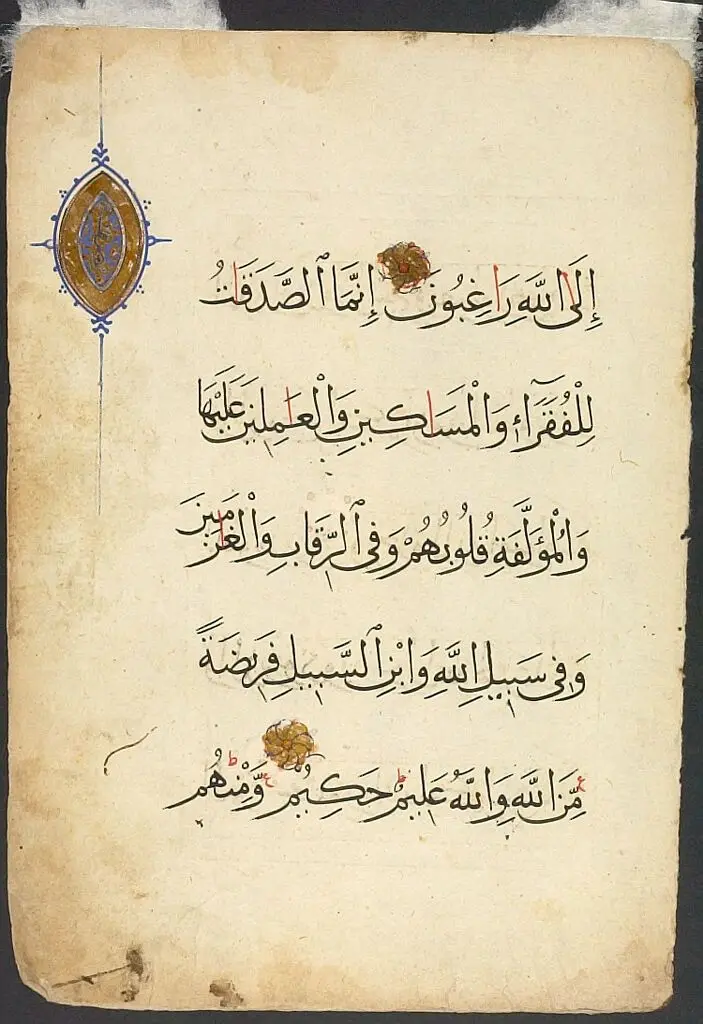 إِلَى اللَّهِ رَاغِبُونَ إِنَّمَا ٱلصَّدَقَاتُ
لِلْفُقَرَآءِ وَالْمَسَاكِينِ وَالْعَامِلِينَ عَلَيْهَا
وَالْمُؤَلَّفَةِ قُلُوبُهُمْ وَفِي ٱلرِّقَابِ وَالْغَارِمِينَ
وَفِي سَبِيلِ اللَّهِ وَابْنِ ٱلسَّبِيلِ فَرِيضَةً
مِّنَ اللَّهِ وَاللَّهُ عَلِيمٌ حَكِيمٌ وَّمِنْهُم